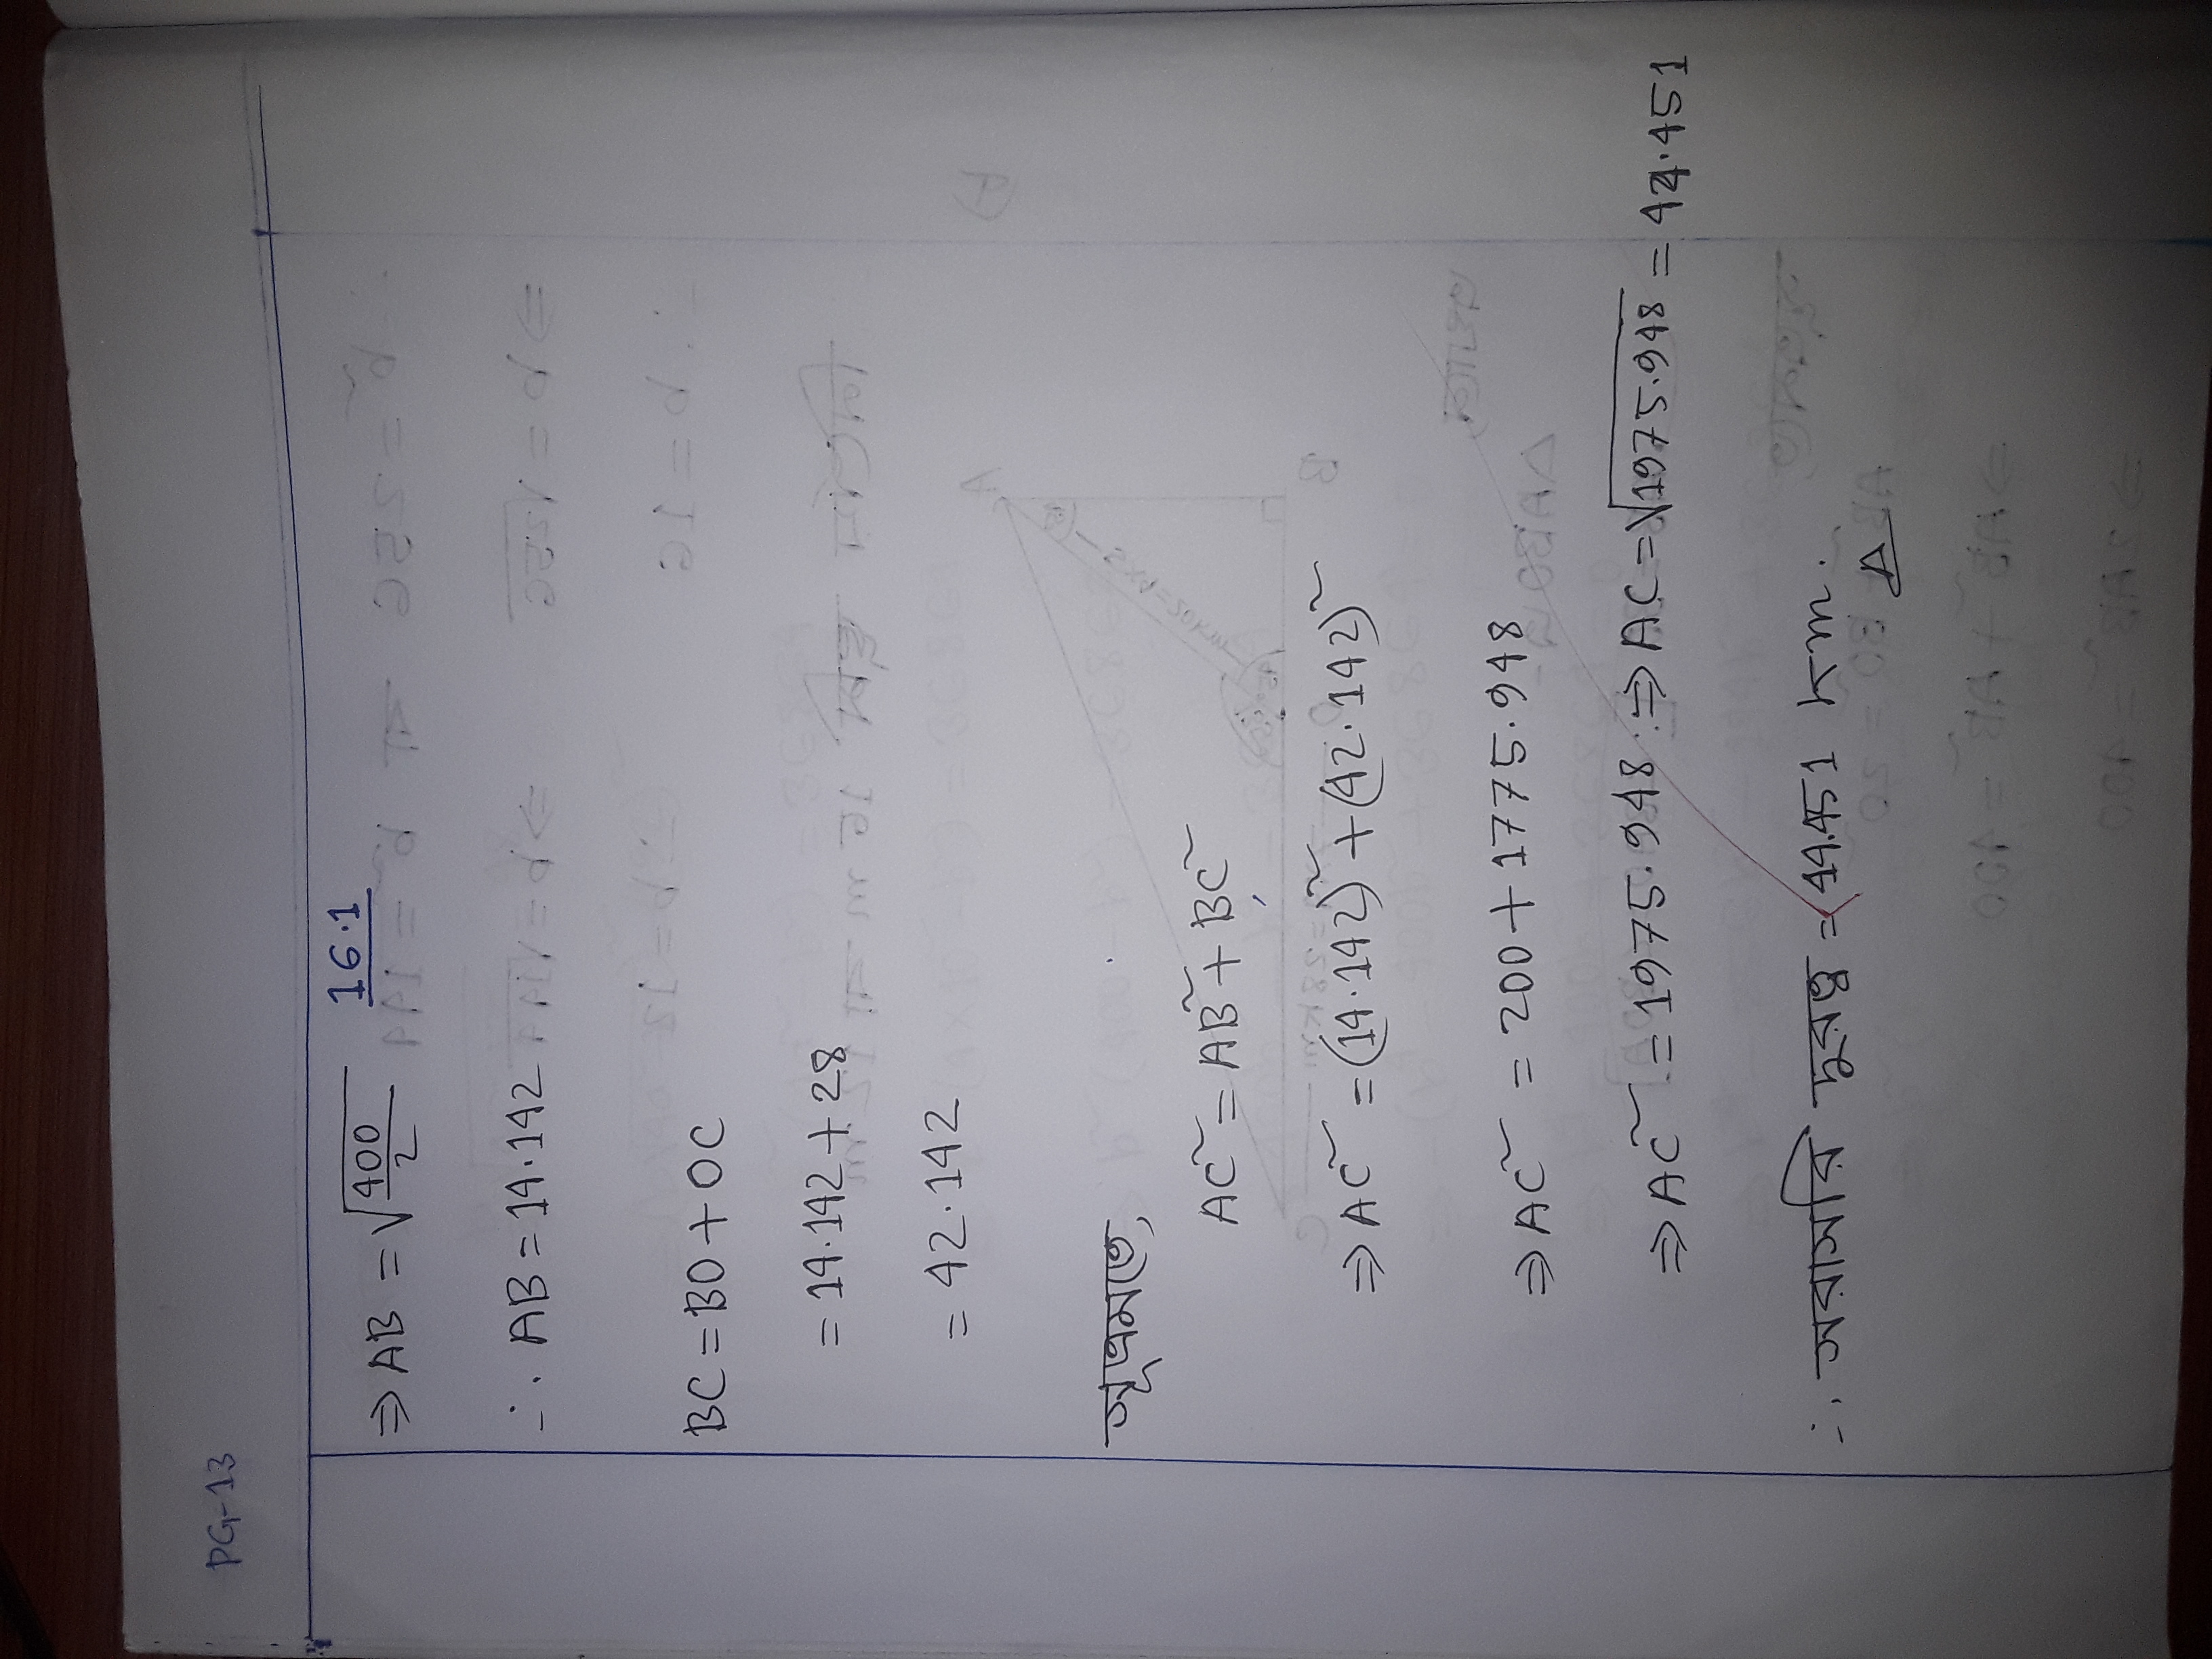 PG-13
16.1
⇒ AB = √(400/2)
∴ AB = 14.142
BC = BO + OC
= 14.142 + 28
= 42.142
সূত্রমতে,
AC² = AB² + BC²
⇒ AC² = (14.142)² + (42.142)²
⇒ AC² = 200 + 1775.948
⇒ AC² = 1975.948 ⇒ AC = √1975.948 = 44.451
∴ সরাসরি দূরত্ব = 44.451 km.